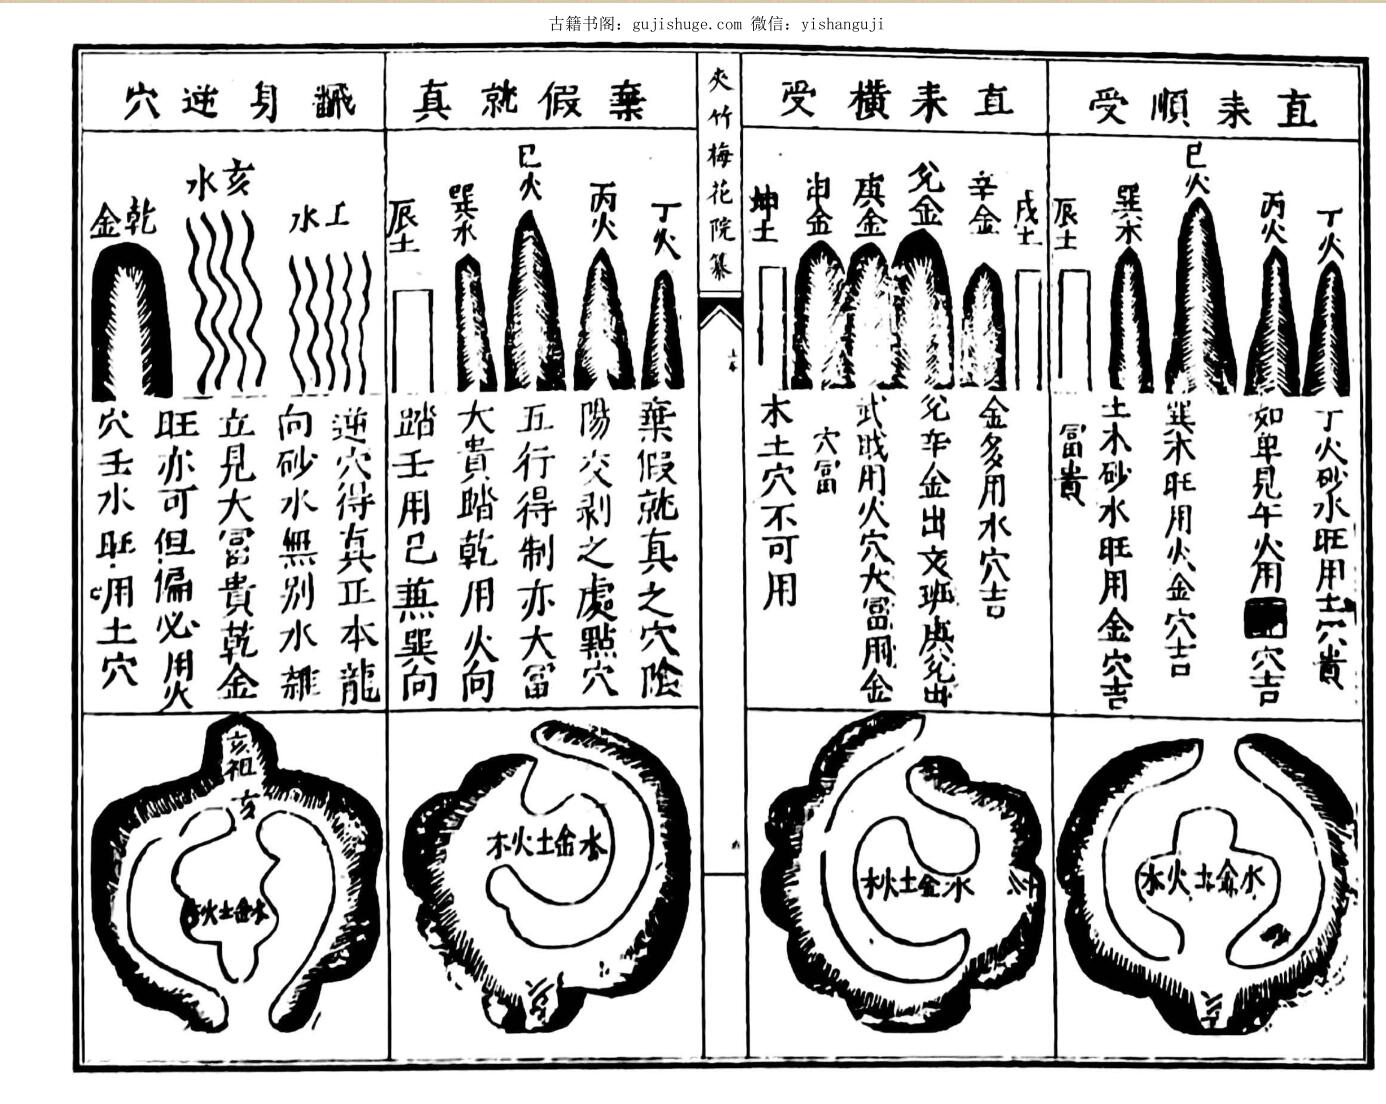 古籍书阁：gujishuge.com 微信：yishanguji
直来順受
丁火
丙火
巳火
巽木
辰土
丁火砂水旺用土穴貴
如单見午火用
穴吉
巽木旺用火金穴吉
土木砂水旺用金穴吉
冨貴
水金土火木
亥
直来橫受
戌土
辛金
兌金
庚金
申金
坤土
金多用水穴吉
兌辛金出文班庚兌出
武戝用火穴大冨用金
穴冨
木土穴不可用
水金土火木
夾竹梅花院纂
上卷
棄假就真
丁火
丙火
巳火
巽木
辰土
棄假就真之穴陰
陽交剥之處點穴
五行得制亦大冨
大貴踏乾用火向
踏壬用巳兼巽向
水金土火木
亥
飜身逆穴
水
亥水
乾金
逆穴得真正本龍
向砂水無别水雜
立見大冨貴乾金
旺亦可但偏必用火
穴壬水旺用土穴
亥祖
亥
水金土火木